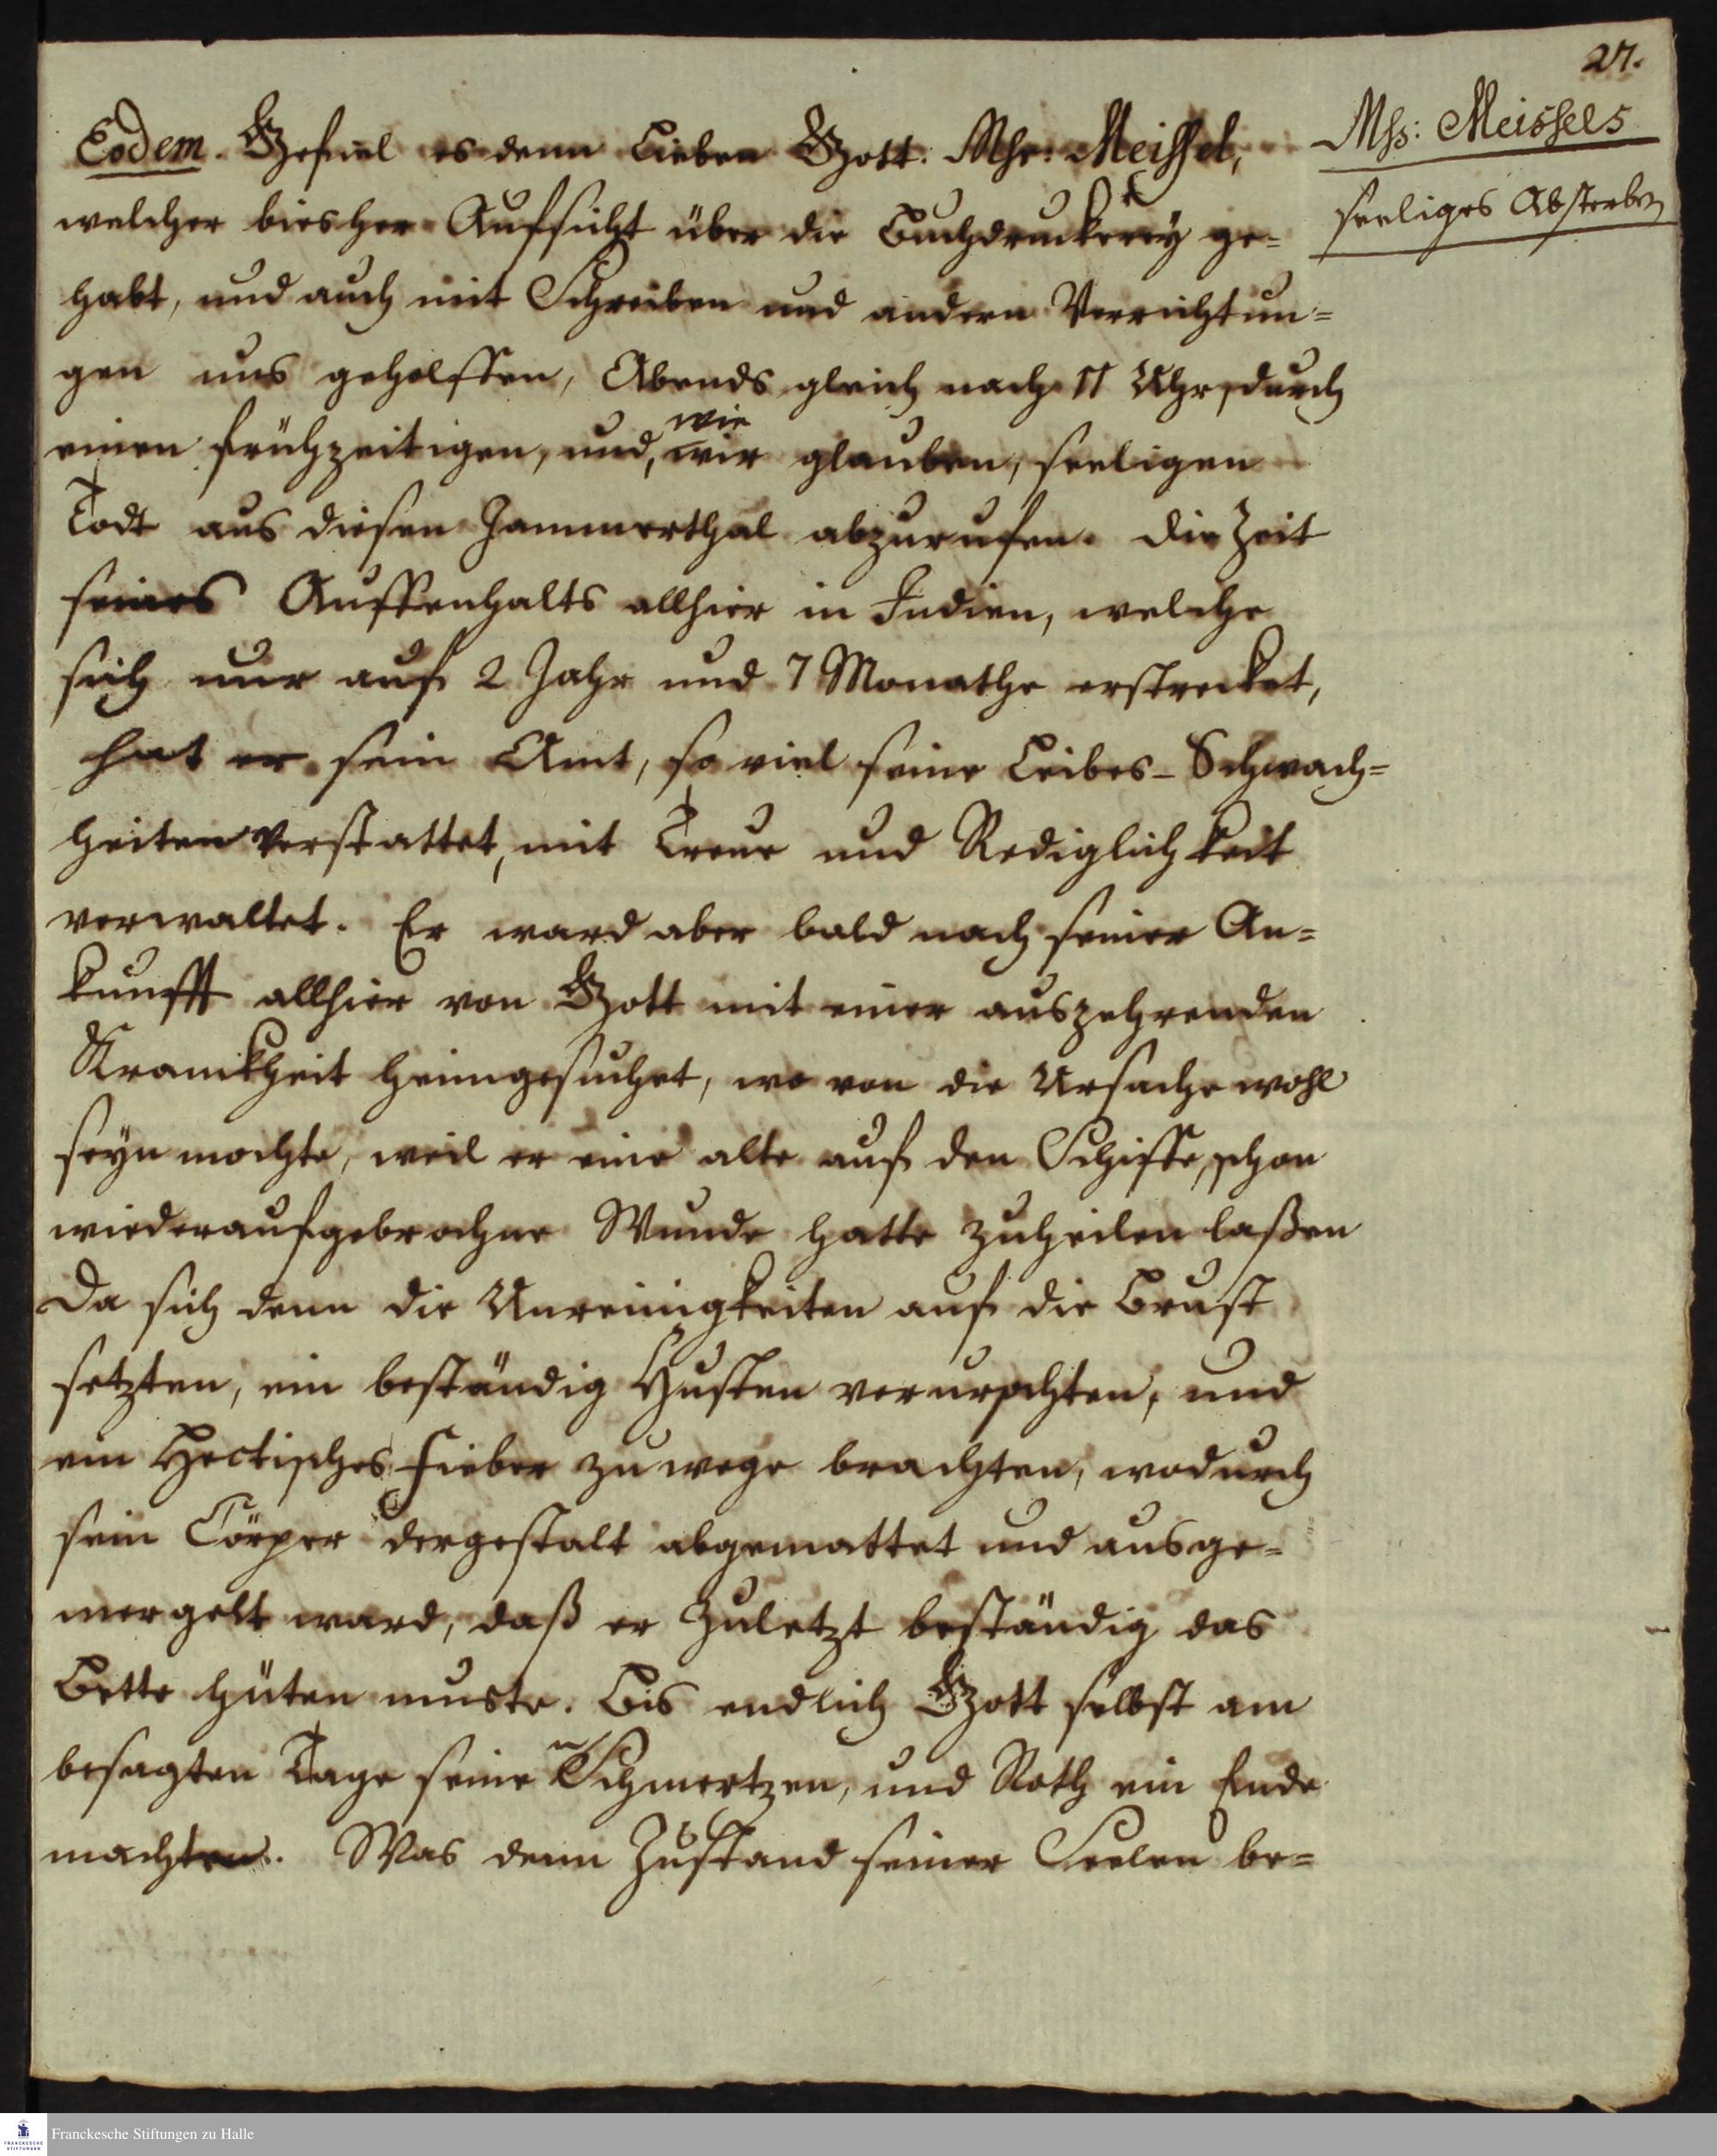 27.
Mss: Meissels
seeliges Absterben
Eodem. Gefiel es denn Lieben Gott. Msr: Meissel,
welcher biesher Aufsicht über die Buchdruckerey ge=
habt, und auch mit Schreiben und andern Verrichtun=
gen uns geholffen, Abends gleich nach 11 Uhr, durch
wie
einen frühzeitigen, und, wir glauben, seeligen
Todt aus diesen Jammerthal abzurufen. Die Zeit
seines Auffenhalts allhier in Indien, welche
sich nur auf 2 Jahr und 7 Monathe erstrecket,
hat er sein Amt, so viel seine Leibes-Schwach=
heiten verstattet, mit Treue und Rediglichkeit
verwaltet. Er ward aber bald nach seiner An=
kunfft allhier von Gott mit einer auszehrenden
Kranckheit heimgesuchet, wo von die Ursache wohl
seyn mochte, weil er eine alte auf den Schiffe, schon
wiederaufgebrochne Wunde hatte zuheilen laßen
Da sich denn die Unreinigkeiten auf die Brust
setzten, ein beständig Husten verursachten, und
ein Hectisches Fieber zu wege brachten, wodurch
sein Cörper dergestalt abgemattet und ausge=
mergelt ward, daß er zuletzt beständig das
Bette hüten muste. Bis endlich Gott selbst am
besagten Tage seinen Schmertzen, und Noth ein Ende
machten. Was denn Zustand seiner Seelen be=
Franckesche Stiftungen zu Halle